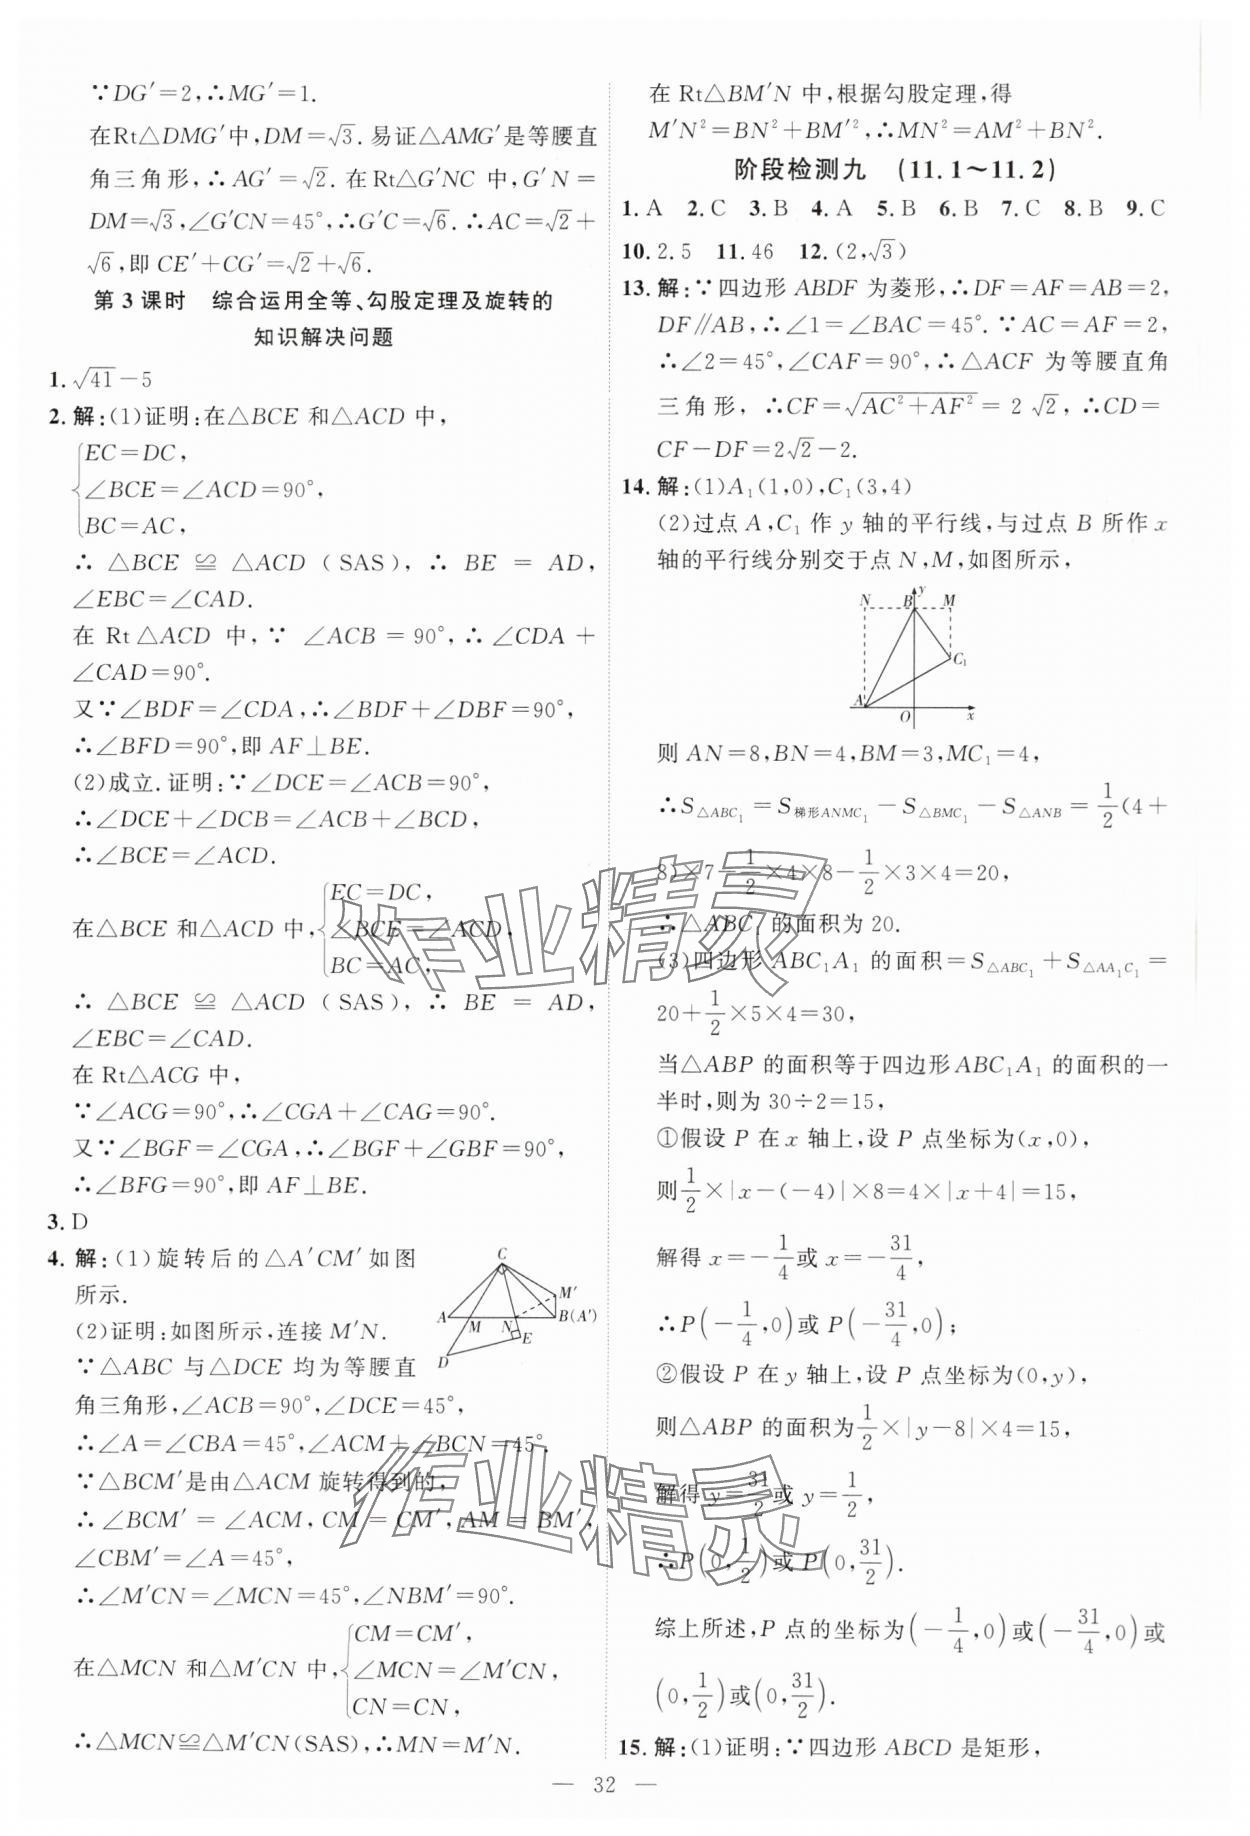 ∵DG′=2,∴MG′=1.
在Rt△DMG′中,DM=√3. 易证△AMG′是等腰直
角三角形,∴AG′=√2. 在Rt△G′NC 中,G′N=
DM=√3,∠G′CN=45°,∴G′C=√6. ∴AC=√2+
√6,即 CE′+CG′=√2+√6.
第 3 课时 综合运用全等、勾股定理及旋转的
知识解决问题
1. √41-5
2. 解:(1)证明:在△BCE 和△ACD 中,
EC=DC,
∠BCE=∠ACD=90°,
BC=AC,
∴ △BCE ≌ △ACD (SAS), ∴ BE = AD,
∠EBC=∠CAD.
在 Rt△ACD 中,∵ ∠ACB = 90°,∴ ∠CDA +
∠CAD=90°.
又∵∠BDF=∠CDA,∴∠BDF+∠DBF=90°,
∴∠BFD=90°,即 AF⊥BE.
(2)成立. 证明:∵∠DCE=∠ACB=90°,
∴∠DCE+∠DCB=∠ACB+∠BCD,
∴∠BCE=∠ACD.
在△BCE 和△ACD 中,
EC=DC,
∠BCE=∠ACD,
BC=AC,
∴ △BCE ≌ △ACD (SAS), ∴ BE = AD,
∠EBC=∠CAD.
在 Rt△ACG 中,
∵∠ACG=90°,∴∠CGA+∠CAG=90°.
又∵∠BGF=∠CGA,∴∠BGF+∠GBF=90°,
∴∠BFG=90°,即 AF⊥BE.
3. D
4. 解:(1)旋转后的△A′CM′如图
所示.
(2)证明:如图所示,连接 M′N.
∵△ABC 与△DCE 均为等腰直
角三角形,∠ACB=90°,∠DCE=45°,
C
A
M
N
M′
B(A′)
E
D
∴∠A=∠CBA=45°,∠ACM+∠BCN=45°.
∵△BCM′是由△ACM 旋转得到的,
∴∠BCM′=∠ACM,CM=CM′,AM=BM′,
∠CBM′=∠A=45°,
∴∠M′CN=∠MCN=45°,∠NBM′=90°.
在△MCN 和△M′CN 中,
CM=CM′,
∠MCN=∠M′CN,
CN=CN,
∴△MCN≌△M′CN(SAS),∴MN=M′N.
在 Rt△BM′N 中,根据勾股定理,得
M′N²=BN²+BM′²,∴MN²=AM²+BN².
阶段检测九 (11.1～11.2)
1. A 2. C 3. B 4. A 5. B 6. B 7. C 8. B 9. C
10. 2.5 11. 46 12. (2,√3)
13. 解:∵四边形 ABDF 为菱形,∴DF=AF=AB=2,
DF∥AB,∴∠1=∠BAC=45°. ∵AC=AF=2,
∴∠2=45°,∠CAF=90°,∴△ACF 为等腰直角
三角形,∴CF=√(AC²+AF²)=2√2,∴CD=
CF-DF=2√2-2.
14. 解:(1)A₁(1,0),C₁(3,4)
(2)过点 A,C₁ 作 y 轴的平行线,与过点 B 所作 x
轴的平行线分别交于点 N,M,如图所示,
N
B
y
M
C₁
A
O
x
则 AN=8,BN=4,BM=3,MC₁=4,
∴S△ABC₁=S梯形ANMC₁-S△BMC₁-S△ANB=1/2(4+
8)×7-1/2×4×8-1/2×3×4=20,
∴△ABC₁ 的面积为 20.
(3)四边形 ABC₁A₁ 的面积=S△ABC₁+S△AA₁C₁=
20+1/2×5×4=30,
当△ABP 的面积等于四边形ABC₁A₁ 的面积的一
半时,则为 30÷2=15,
①假设 P 在 x 轴上,设 P 点坐标为(x,0),
则1/2×|x-(-4)|×8=4×|x+4|=15,
解得 x=-1/4或 x=-31/4,
∴P(-1/4,0)或 P(-31/4,0);
②假设 P 在 y 轴上,设 P 点坐标为(0,y),
则△ABP 的面积为1/2×|y-8|×4=15,
解得 y=31/2或 y=1/2,
∴P(0,1/2)或P(0,31/2).
综上所述,P 点的坐标为(-1/4,0)或(-31/4,0)或
(0,1/2)或(0,31/2).
15. 解:(1)证明:∵四边形 ABCD 是矩形,
— 32 —
作业精灵
作业精灵